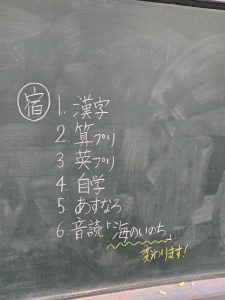 宿 1. 漢字
2. 算プリ
3 英プリ
4. 自学
5 あすなろ
6. 音読「海のいのち」
変わります!